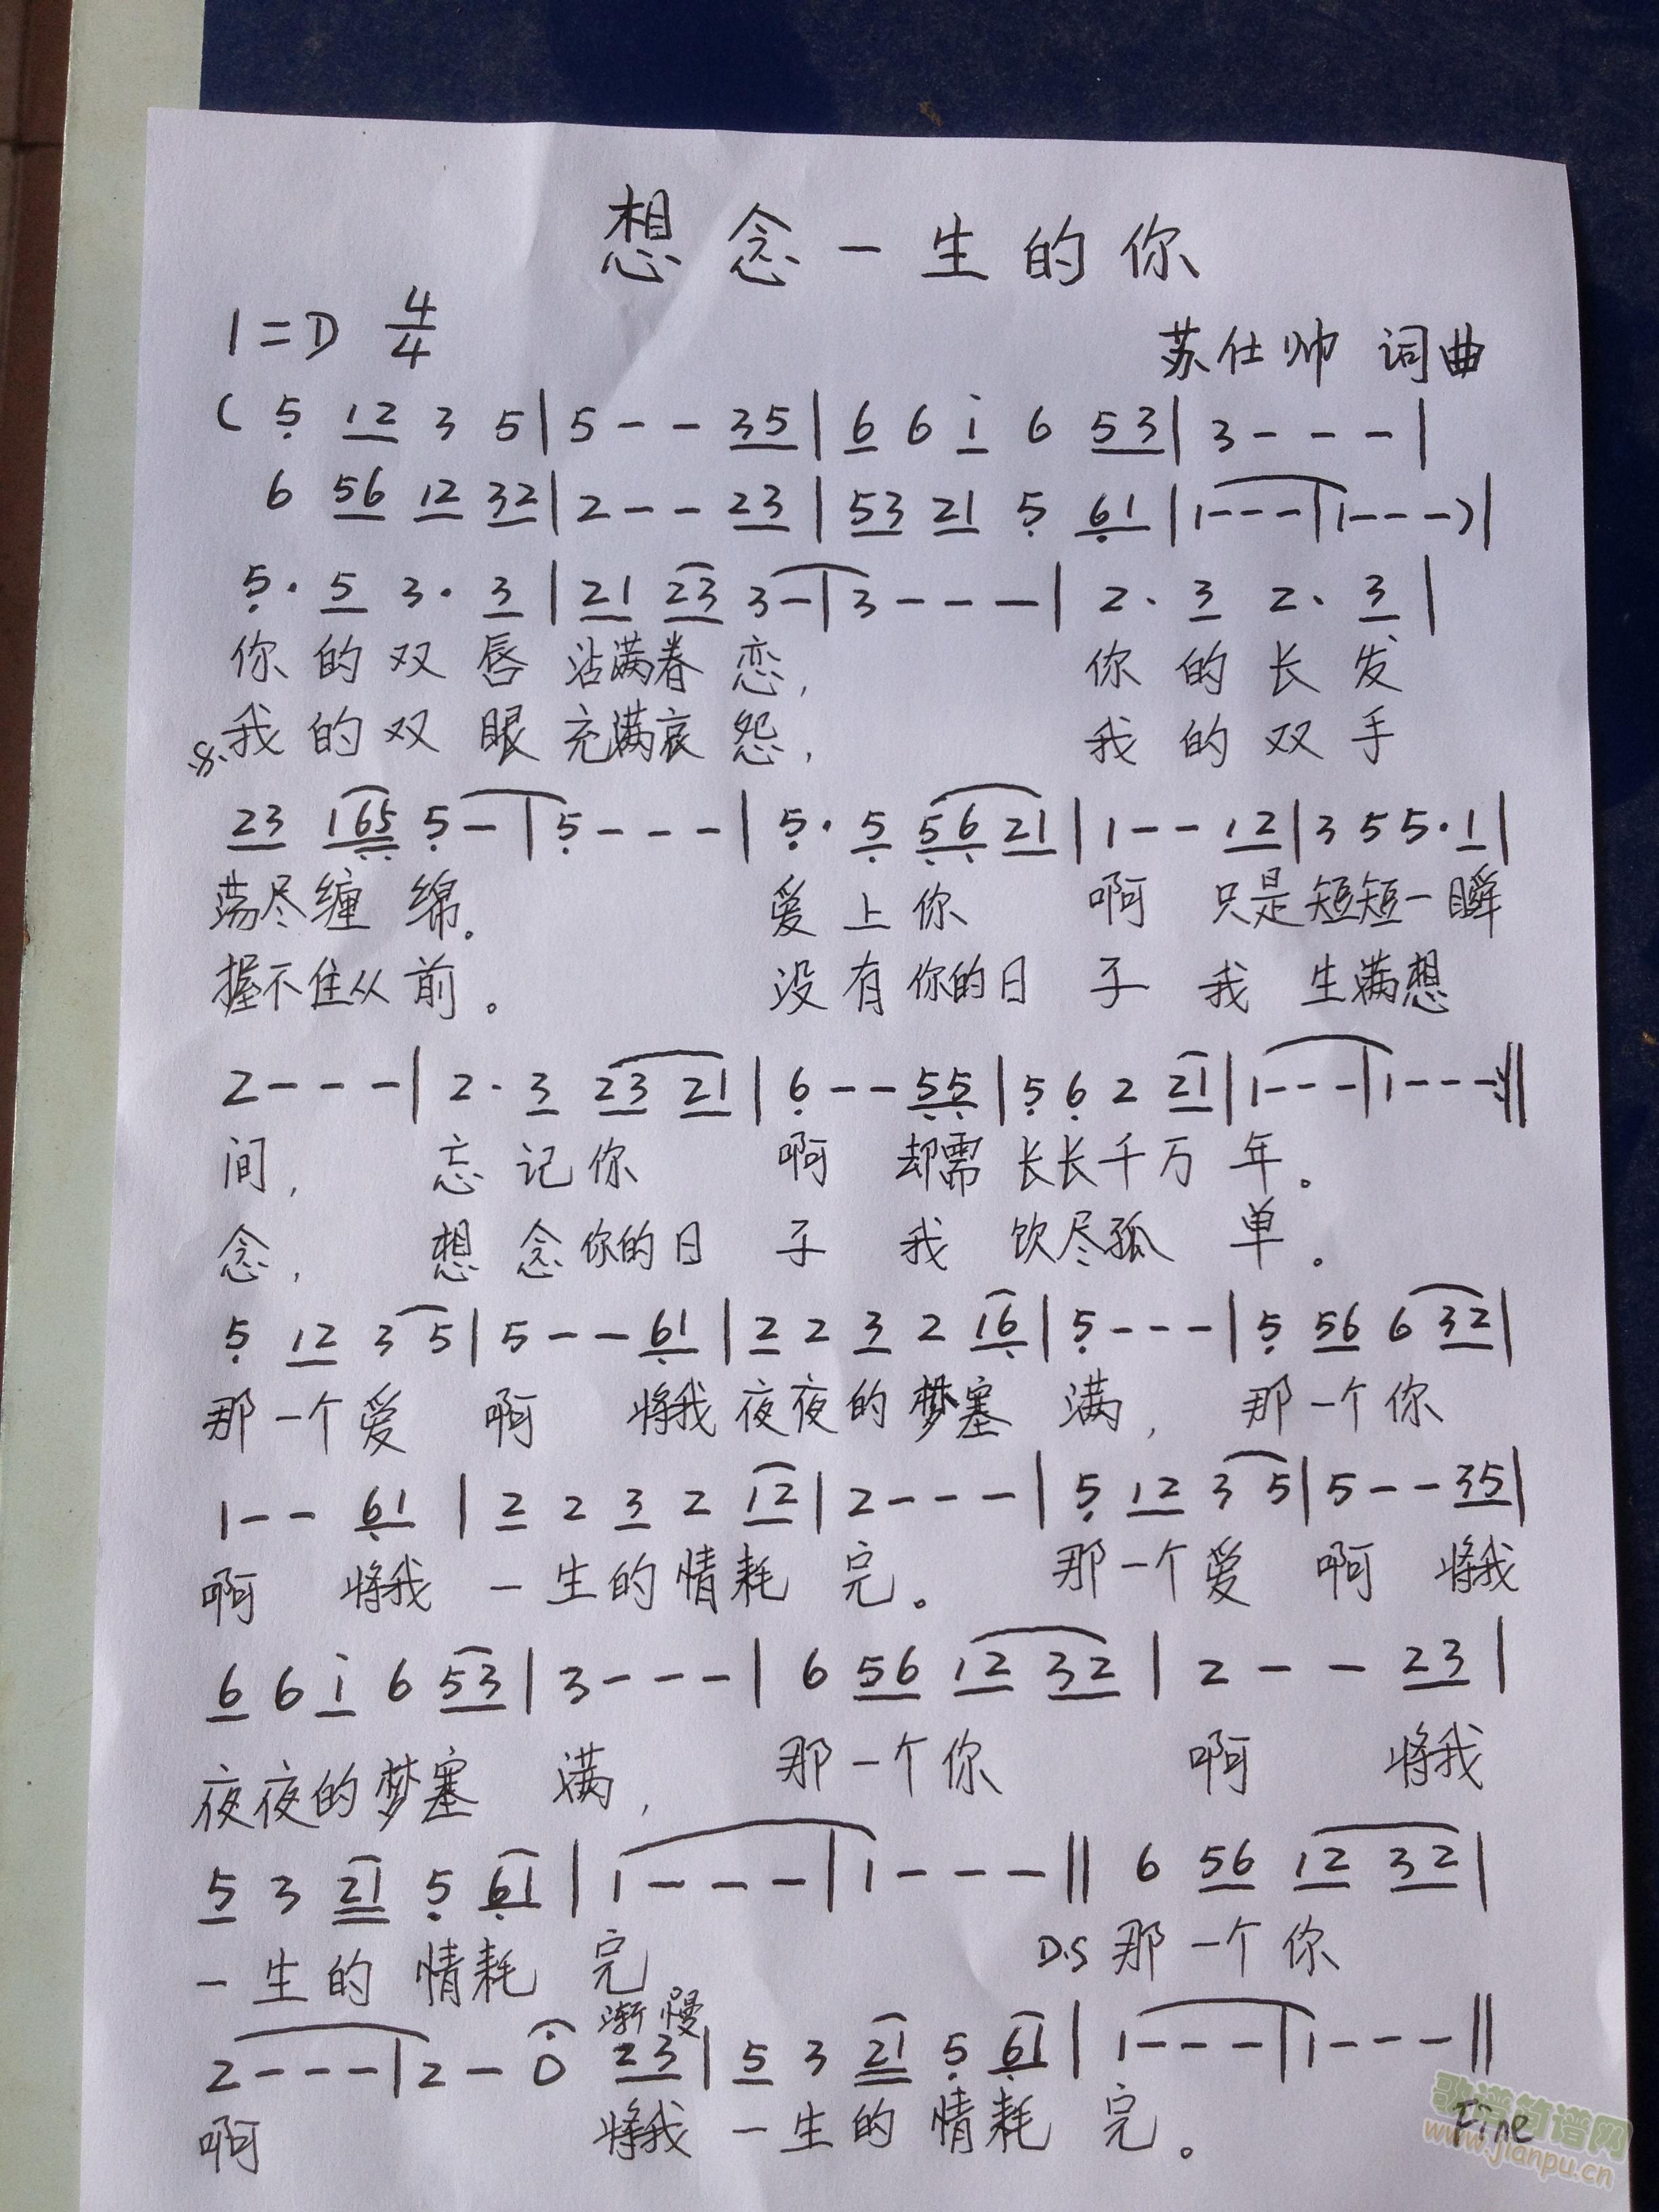 想念一生的你
1=D 4/4
苏仕帅 词曲
( 5 12 3 5 | 5 - - 35 | 6 6 i 6 53 | 3 - - - |
6 56 12 32 | 2 - - 23 | 53 21 5 61 | 1 - - - | 1 - - - ) |
5 · 5 3 · 3 | 21 23 3 - | 3 - - - | 2 · 3 2 · 3 |
你的双唇沾满眷恋, 你的长发
我的双眼充满哀怨, 我的双手
23 165 5 - | 5 - - - | 5 · 5 56 21 | 1 - - 12 | 3 5 5 · 1 |
荡尽缠绵。 爱上你 啊 只是短短一瞬
握不住从前。 没有你的日 子 我 生满想
2 - - - | 2 · 3 23 21 | 6 - - 55 | 5 6 2 21 | 1 - - - | 1 - - - :||
间, 忘记你 啊 却需长长千万年。
念, 想念你的日 子 我 饮尽孤单。
5 12 3 5 | 5 - - 61 | 2 2 3 2 16 | 5 - - - | 5 56 6 32 |
那一个爱 啊 将我夜夜的梦塞满, 那一个你
1 - - 61 | 2 2 3 2 12 | 2 - - - | 5 12 3 5 | 5 - - 35 |
啊 将我一生的情耗完。 那一个爱 啊 将我
6 6 i 6 53 | 3 - - - | 6 56 12 32 | 2 - - 23 |
夜夜的梦塞满, 那一个你 啊 将我
5 3 21 5 61 | 1 - - - | 1 - - - || 6 56 12 32 |
一生的情耗完 D.S 那一个你
渐慢
2 - - - | 2 - 0 23 | 5 3 21 5 61 | 1 - - - | 1 - - - ||
啊 将我一生的情耗完。
Fine
歌谱简谱网
www.jianpu.cn